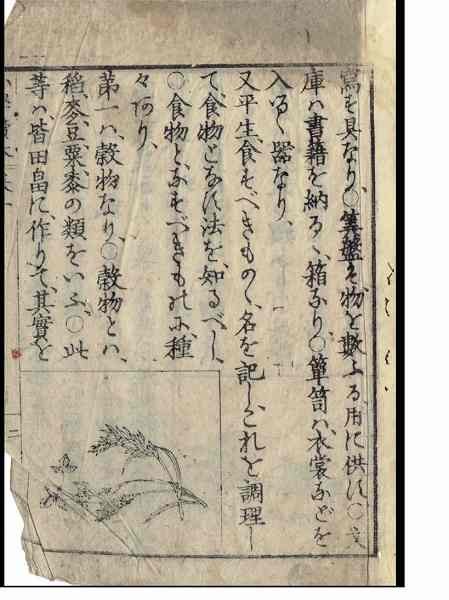 寫す具なり、○算盤ハ物を數ふる用に供す○文
庫ハ書籍を納るゝ箱なり、○簞笥ハ、衣裳などを
入るゝ器なり、
又平生食すべきものゝ名を記し、これを調理し
て、食物となす法を、知るべし、
○食物と、なすべきものに、種
々あり、
第一ハ、穀物なり、○穀物とハ、
稻、麥、豆、粟、黍の類をいふ、○此
等ハ皆田畠に作りて、其實を
二